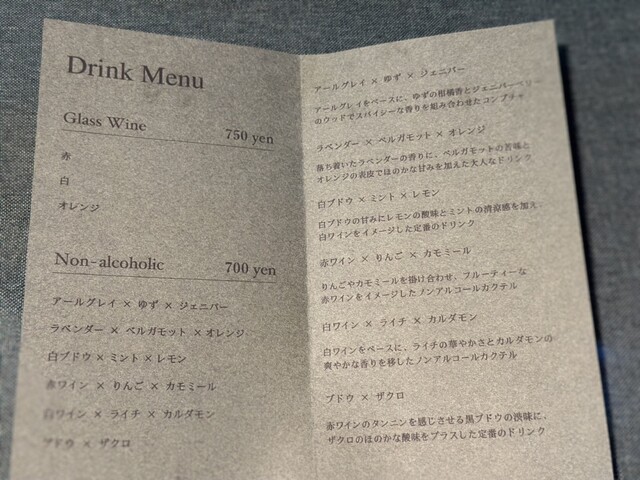 Drink Menu
Glass Wine 750 yen
赤
白
オレンジ
Non-alcoholic 700 yen
アールグレイ × ゆず × ジェニパー
ラベンダー × ベルガモット × オレンジ
白ブドウ × ミント × レモン
赤ワイン × りんご × カモミール
白ワイン × ライチ × カルダモン
ブドウ × ザクロ
アールグレイ × ゆず × ジェニパー
アールグレイをベースに、ゆずの柑橘香とジェニパーベリー
のウッドでスパイシーな香りを組み合わせたコンブチャ
ラベンダー × ベルガモット × オレンジ
落ち着いたラベンダーの香りに、ベルガモットの苦味と
オレンジの表皮でほのかな甘みを加えた大人なドリンク
白ブドウ × ミント × レモン
白ブドウの甘みにレモンの酸味とミントの清涼感を加え、
白ワインをイメージした定番のドリンク
赤ワイン × りんご × カモミール
りんごやカモミールを掛け合わせ、フルーティーな
赤ワインをイメージしたノンアルコールカクテル
白ワイン × ライチ × カルダモン
白ワインをベースに、ライチの華やかさとカルダモンの
爽やかな香りを移したノンアルコールカクテル
ブドウ × ザクロ
赤ワインのタンニンを感じさせる黒ブドウの渋味に、
ザクロのほのかな酸味をプラスした定番のドリンク